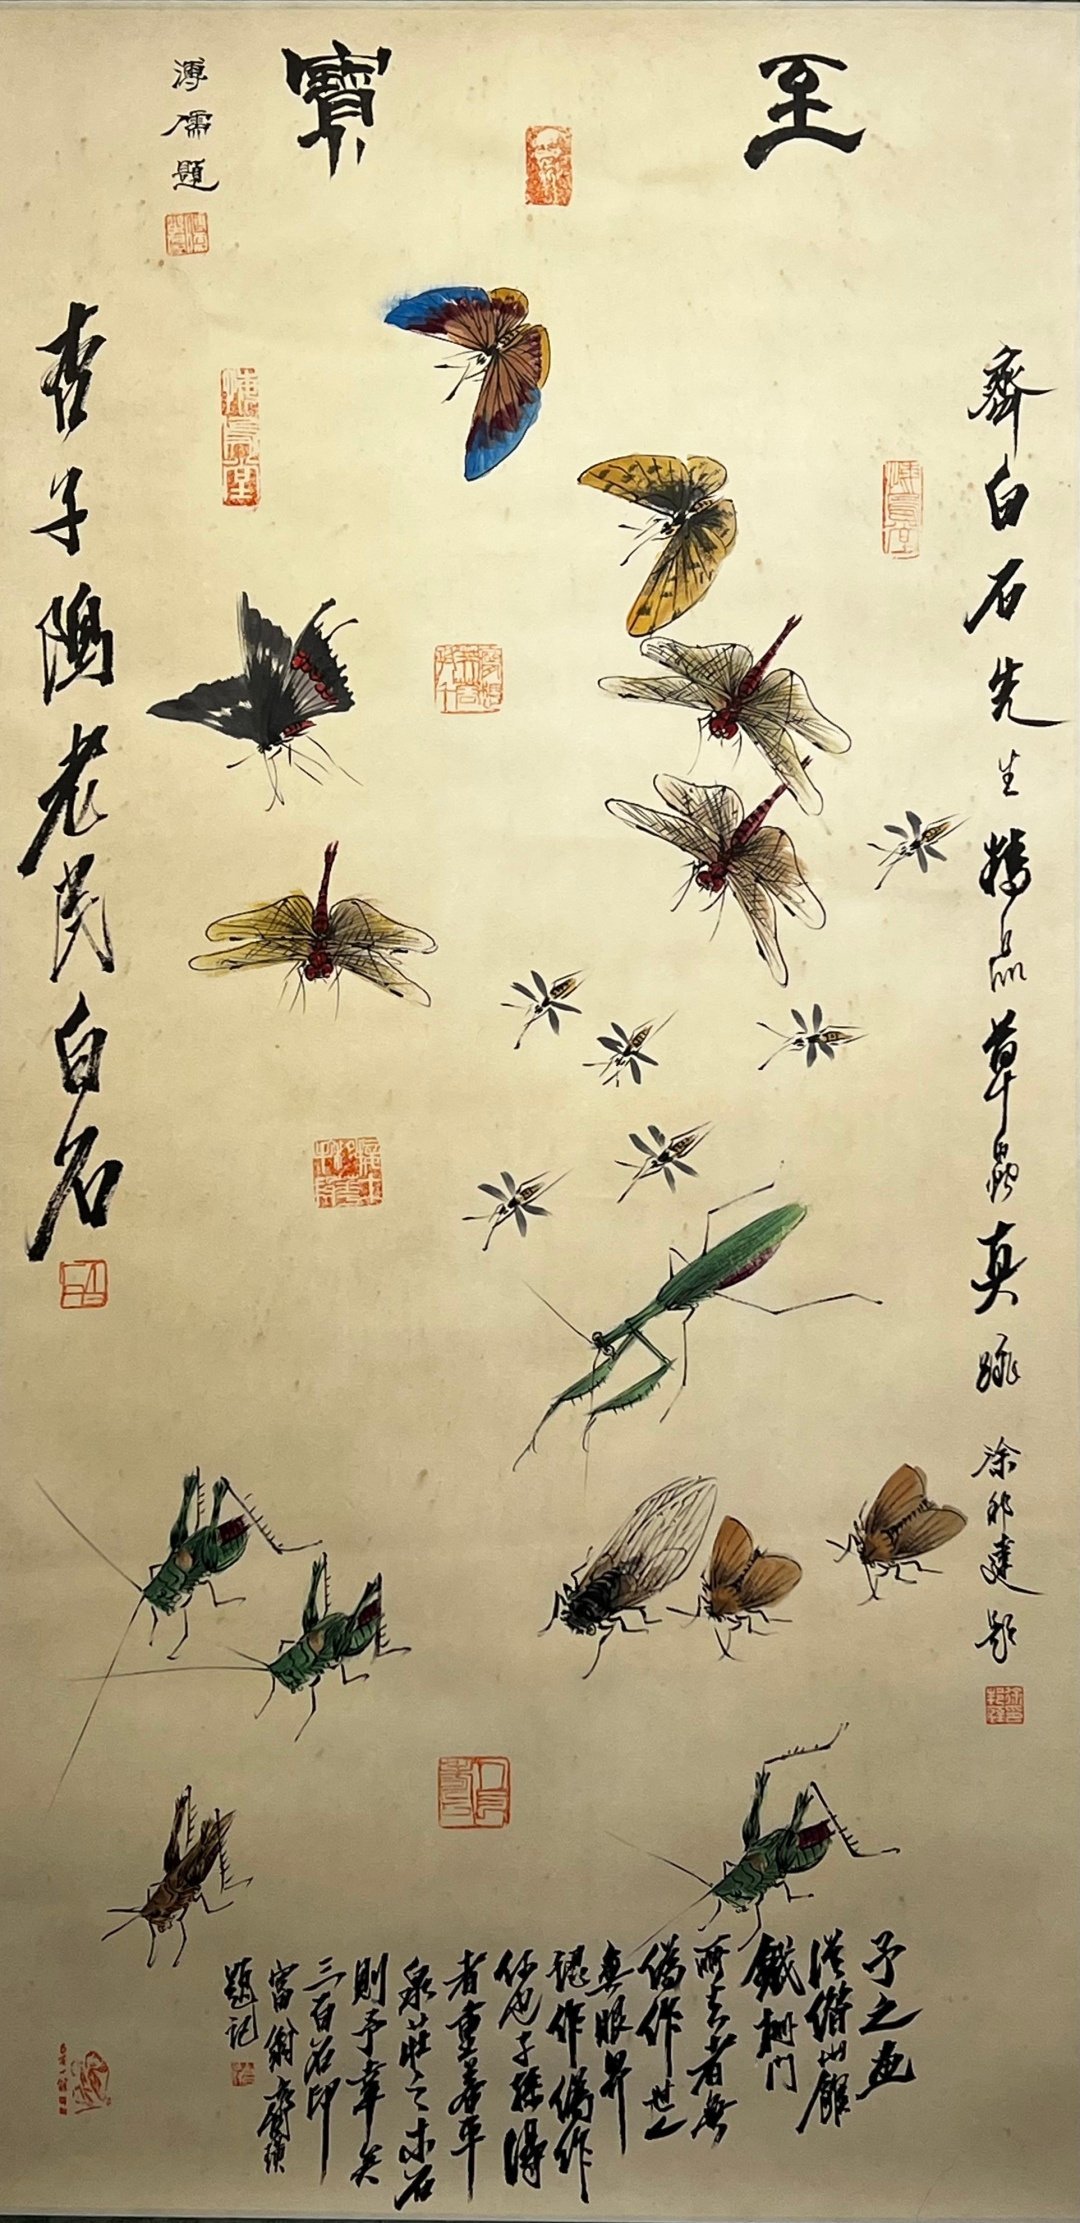 至寶
溥儒題
齊白石先生精品草蟲真跡
徐邦達題
杏子隖老民白石
予之畫
從借山館
鐵柵門
所去者無
偽作世人
無眼界
認作偽作
何也子孫得
者重若平
泉莊之木石
則予幸矣
三百石印
富翁齊璜
題記